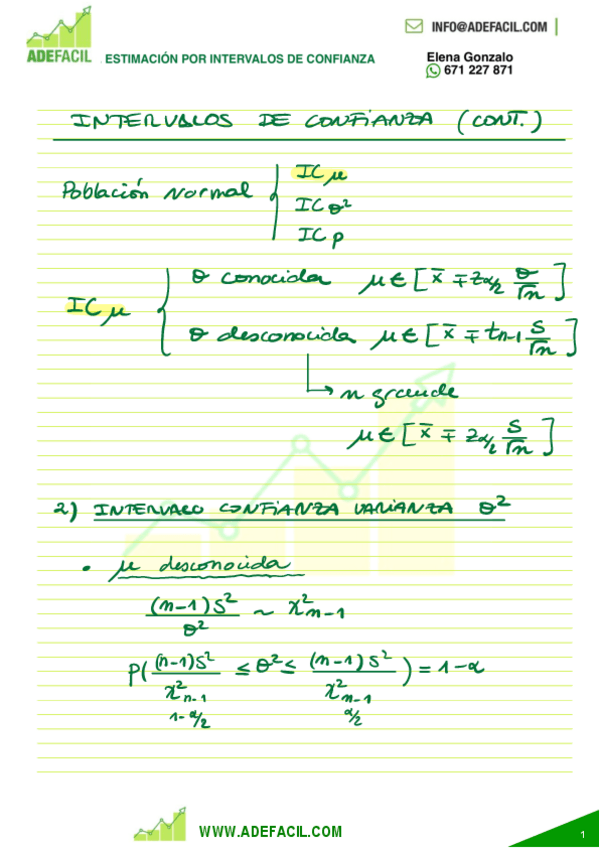 ADEFACIL
ESTIMACIÓN POR INTERVALOS DE CONFIANZA
INFO@ADEFACIL.COM
Elena Gonzalo
671 227 871
INTERVALOS DE CONFIANZA (CONT.)
Población Normal { IC μ
IC θ²
IC p
IC μ { θ conocida μ∈[x̄ ∓ z_α/2 θ/√n]
θ desconocida μ∈[x̄ ∓ t_n-1 S/√n]
↳ n grande
μ∈[x̄ ∓ z_α/2 S/√n]
2) INTERVALO CONFIANZA VARIANZA θ²
• μ desconocida
(n-1)S²/θ² ~ χ²_n-1
P((n-1)S²/χ²_n-1 1-α/2 ≤ θ² ≤ (n-1)S²/χ²_n-1 α/2) = 1-α
WWW.ADEFACIL.COM
1